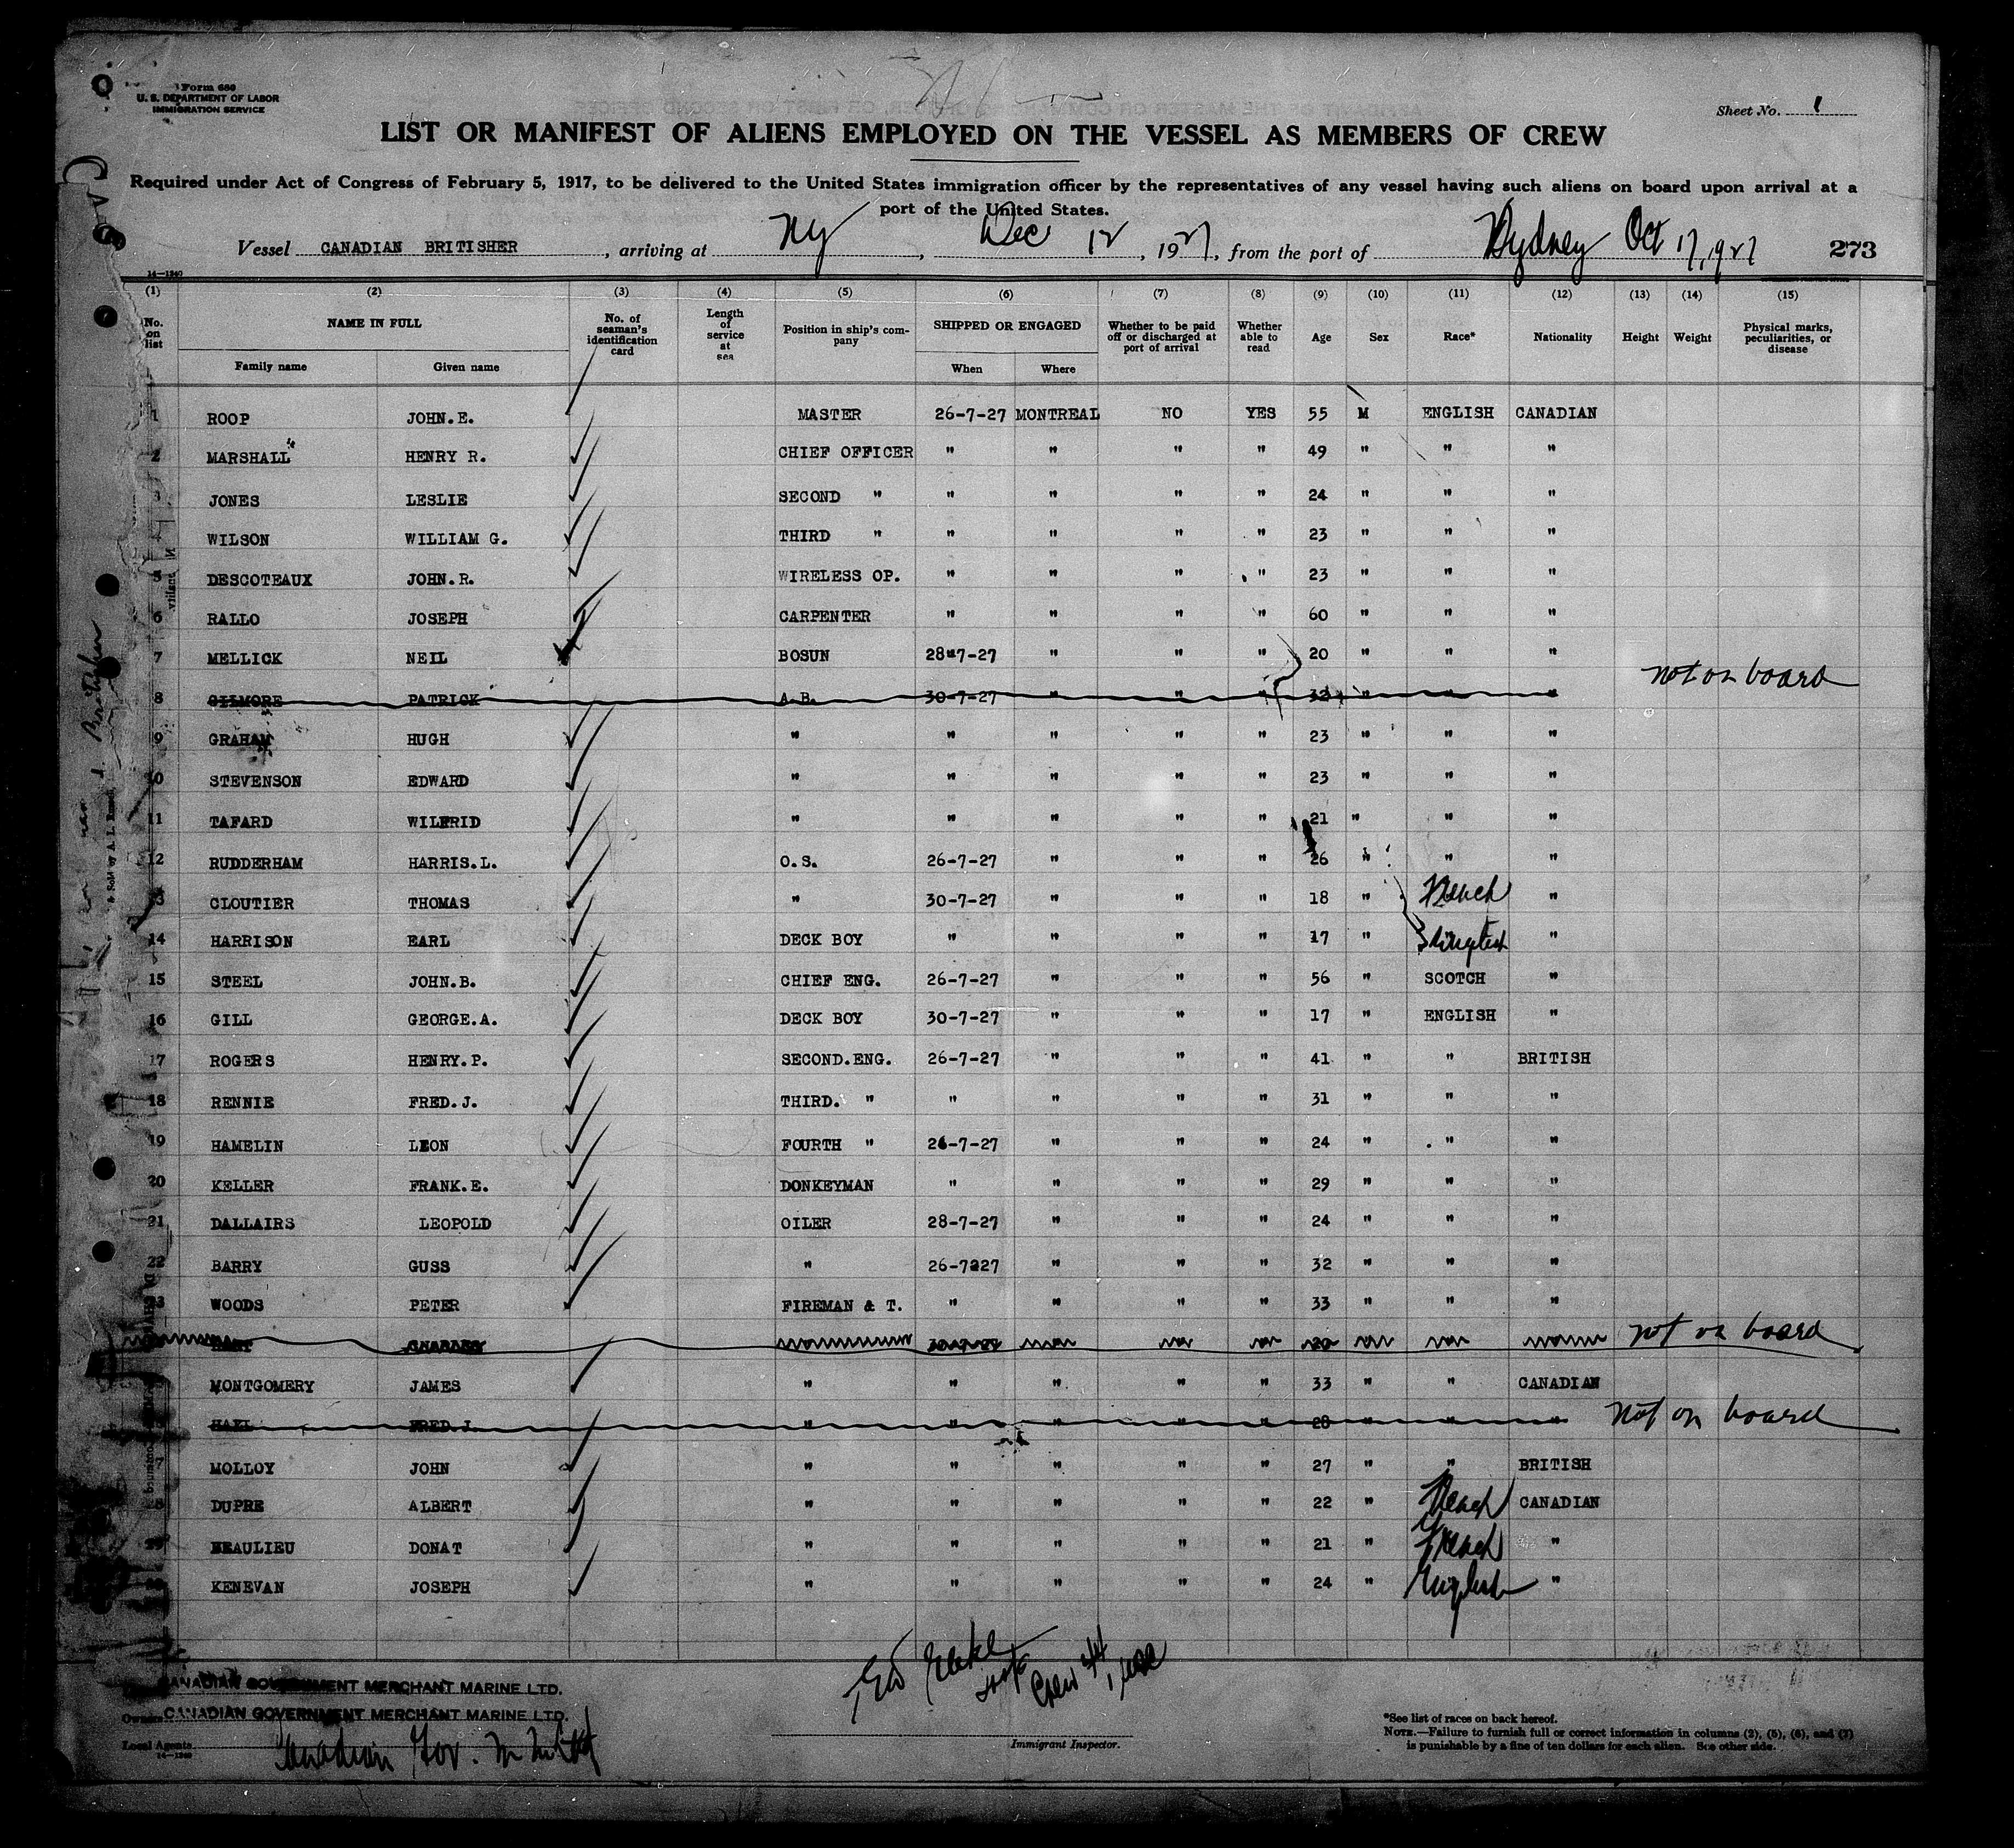 Form 680
U. S. DEPARTMENT OF LABOR
IMMIGRATION SERVICE
Sheet No. 1
LIST OR MANIFEST OF ALIENS EMPLOYED ON THE VESSEL AS MEMBERS OF CREW
Required under Act of Congress of February 5, 1917, to be delivered to the United States immigration officer by the representatives of any vessel having such aliens on board upon arrival at a
port of the United States.
Vessel CANADIAN BRITISHER, arriving at NY, Dec 12, 1927, from the port of Sydney Oct 17, 1927 273
14—1240
(1) (2) (3) (4) (5) (6) (7) (8) (9) (10) (11) (12) (13) (14) (15)
No. on list NAME IN FULL Family name Given name No. of seaman's identification card Length of service at sea Position in ship's company SHIPPED OR ENGAGED When Where Whether to be paid off or discharged at port of arrival Whether able to read Age Sex Race* Nationality Height Weight Physical marks, peculiarities, or disease
1 ROOP JOHN.E. MASTER 26-7-27 MONTREAL NO YES 55 M ENGLISH CANADIAN
2 MARSHALL HENRY R. CHIEF OFFICER " " " " 49 " " "
3 JONES LESLIE SECOND " " " " " 24 " " "
4 WILSON WILLIAM G. THIRD " " " " " 23 " " "
5 DESCOTEAUX JOHN.R. WIRELESS OP. " " " " 23 " " "
6 RALLO JOSEPH CARPENTER " " " " 60 " " "
7 MELLICK NEIL BOSUN 28-7-27 " " " 20 " " "
8 GILMORE PATRICK A.B. 30-7-27 " " " 32 " " " not on board
9 GRAHAM HUGH " " " " " 23 " " "
10 STEVENSON EDWARD " " " " " 23 " " "
11 TAFARD WILFRID " " " " " 21 " " "
12 RUDDERHAM HARRIS.L. O.S. 26-7-27 " " " 26 " " "
13 CLOUTIER THOMAS " 30-7-27 " " " 18 " French "
14 HARRISON EARL DECK BOY " " " " 17 " English "
15 STEEL JOHN.B. CHIEF ENG. 26-7-27 " " " 56 " SCOTCH "
16 GILL GEORGE.A. DECK BOY 30-7-27 " " " 17 " ENGLISH "
17 ROGERS HENRY.P. SECOND.ENG. 26-7-27 " " " 41 " " BRITISH
18 RENNIE FRED.J. THIRD. " " " " " 31 " " "
19 HAMELIN LEON FOURTH " 26-7-27 " " " 24 " " "
20 KELLER FRANK.E. DONKEYMAN " " " " 29 " " "
21 DALLAIRS LEOPOLD OILER 28-7-27 " " " 24 " " "
22 BARRY GUSS " 26-7227 " " " 32 " " "
23 WOODS PETER FIREMAN & T. " " " " 33 " " "
CHARLES not on board
MONTGOMERY JAMES " " " " " 33 " " CANADIAN
FRED.J. " " " " " 28 " " " not on board
7 MOLLOY JOHN " " " " " 27 " " BRITISH
8 DUPRE ALBERT " " " " " 22 " French CANADIAN
BEAULIEU DONAT " " " " " 21 " French "
KENEVAN JOSEPH " " " " " 24 " English "
CANADIAN GOVERNMENT MERCHANT MARINE LTD.
Owners CANADIAN GOVERNMENT MERCHANT MARINE LTD.
Local Agents Canadian Gov. M M Ltd
14—1240
Immigrant Inspector.
*See list of races on back hereof.
NOTE.—Failure to furnish full or correct information in columns (2), (5), (6), and (7)
is punishable by a fine of ten dollars for each alien. See other side.